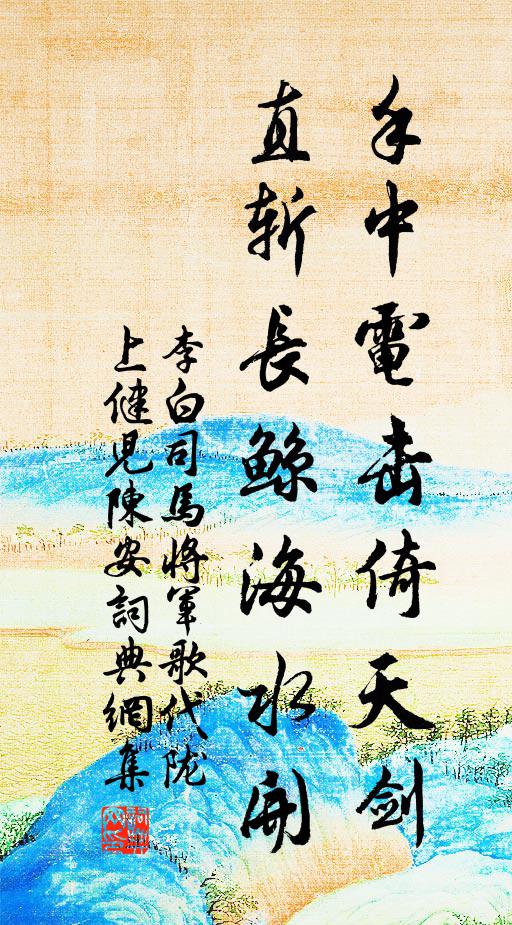 手中電击倚天劍
直斬長鲸海水開
李白司馬將軍歌代陇
上健児陳安詞典網集